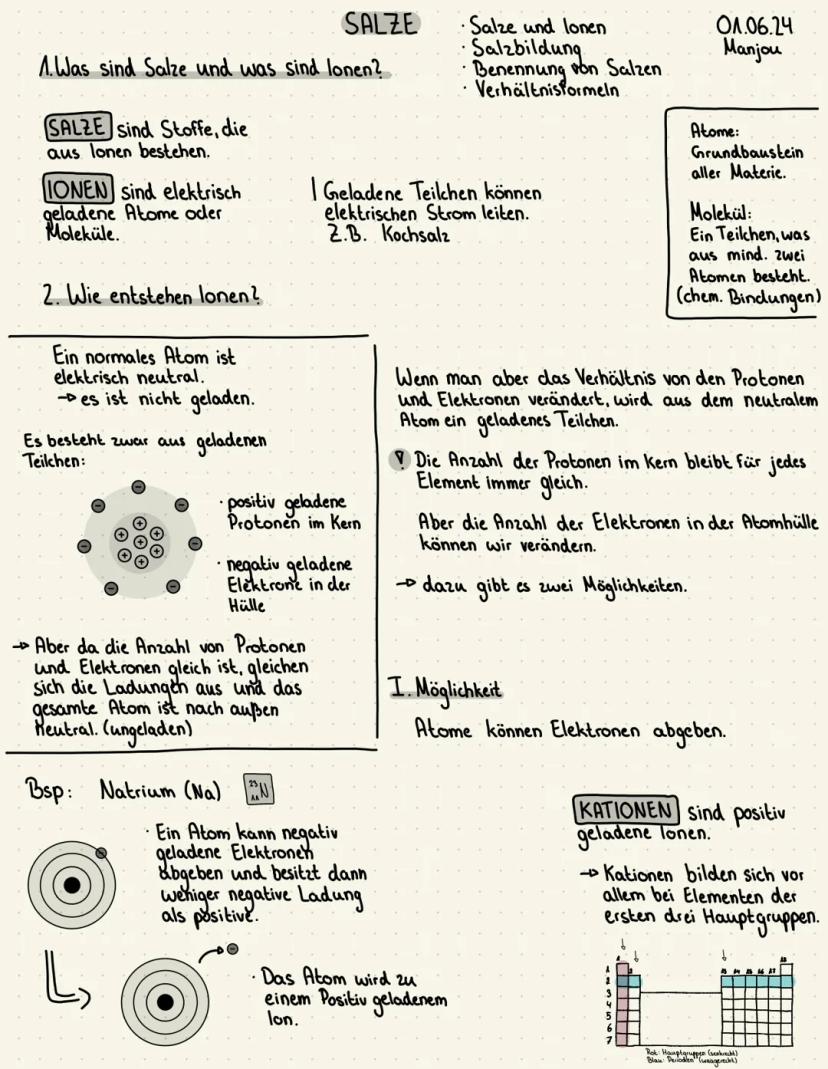 SALZE
· Salze und Ionen
· Salzbildung
· Benennung von Salzen
· Verhältnisformeln
01.06.24
Manjou
1. Was sind Salze und was sind Ionen?
SALZE sind Stoffe, die
aus Ionen bestehen.
IONEN sind elektrisch
geladene Atome oder
Moleküle.
| Geladene Teilchen können
elektrischen Strom leiten.
Z.B. Kochsalz
Atome:
Grundbaustein
aller Materie.
Molekül:
Ein Teilchen, was
aus mind. zwei
Atomen besteht.
(chem. Bindungen)
2. Wie entstehen Ionen?
Ein normales Atom ist
elektrisch neutral.
→ es ist nicht geladen.
Es besteht zwar aus geladenen
Teilchen:
· positiv geladene
Protonen im Kern
· negativ geladene
Elektrone in der
Hülle
→ Aber da die Anzahl von Protonen
und Elektronen gleich ist, gleichen
sich die Ladungen aus und das
gesamte Atom ist nach außen
neutral. (ungeladen)
Wenn man aber das Verhältnis von den Protonen
und Elektronen verändert, wird aus dem neutralem
Atom ein geladenes Teilchen.
! Die Anzahl der Protonen im Kern bleibt für jedes
Element immer gleich.
Aber die Anzahl der Elektronen in der Atomhülle
können wir verändern.
→ dazu gibt es zwei Möglichkeiten.
I. Möglichkeit
Atome können Elektronen abgeben.
Bsp: Natrium (Na) 23 11 N
· Ein Atom kann negativ
geladene Elektronen
abgeben und besitzt dann
weniger negative Ladung
als positive.
· Das Atom wird zu
einem Positiv geladenem
Ion.
KATIONEN sind positiv
geladene Ionen.
→ Kationen bilden sich vor
allem bei Elementen der
ersten drei Hauptgruppen.
1 2 13 14 15 16 17 18
1
2
3
4
5
6
7
Rot: Hauptgruppen (senkrecht)
Blau: Perioden (waagerecht)